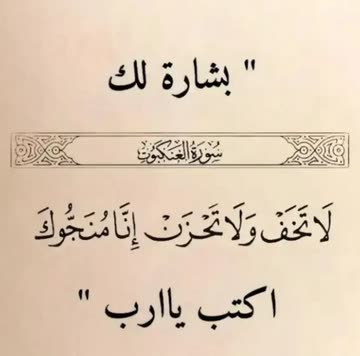 " بشارة لك
سُورَةُ العَنكَبُوت
لَا تَخَفْ وَلَا تَحْزَنْ إِنَّا مُنَجُّوكَ
اكتب ياارب "